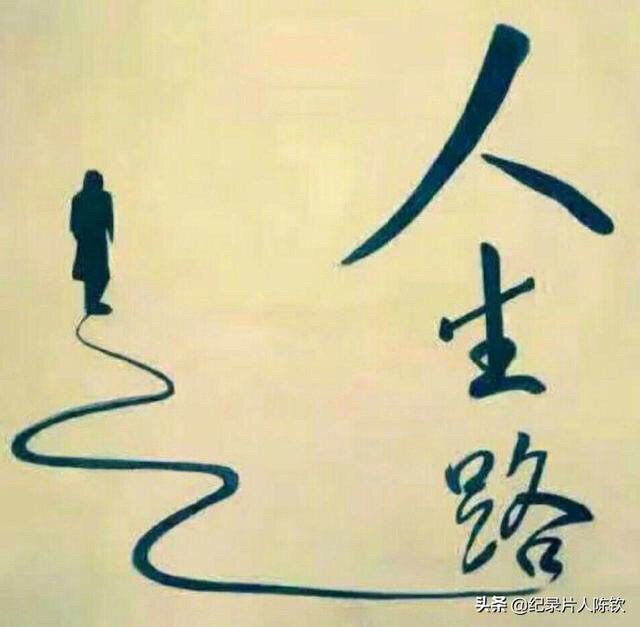 人生路
头条 @纪录片人陈钦